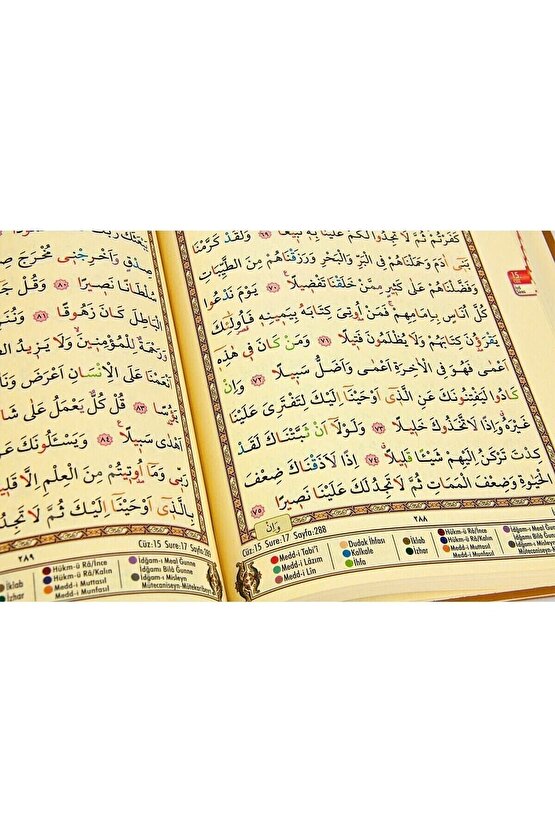 كَفَرْتُمْ ثُمَّ لَا تَجِدُوا لَكُمْ عَلَيْنَا بِهِ تَبِيعًا ﴿٦٩﴾ وَلَقَدْ كَرَّمْنَا
بَنِى اٰدَمَ وَحَمَلْنَاهُمْ فِى الْبَرِّ وَالْبَحْرِ وَرَزَقْنَاهُمْ مِنَ الطَّيِّبَاتِ
وَفَضَّلْنَاهُمْ عَلٰى كَثِيرٍ مِمَّنْ خَلَقْنَا تَفْضِيلًا ﴿٧٠﴾ يَوْمَ نَدْعُوا
كُلَّ اُنَاسٍ بِاِمَامِهِمْ فَمَنْ اُوتِىَ كِتَابَهُ بِيَمِينِهِ فَاُولٰئِكَ
يَقْرَؤُنَ كِتَابَهُمْ وَلَا يُظْلَمُونَ فَتِيلًا ﴿٧١﴾ وَمَنْ كَانَ فِى هٰذِهِ
اَعْمٰى فَهُوَ فِى الْاٰخِرَةِ اَعْمٰى وَاَضَلُّ سَبِيلًا ﴿٧٢﴾ وَاِنْ
كَادُوا لَيَفْتِنُونَكَ عَنِ الَّذِى اَوْحَيْنَا اِلَيْكَ لِتَفْتَرِىَ عَلَيْنَا
غَيْرَهُ وَاِذًا لَاتَّخَذُوكَ خَلِيلًا ﴿٧٣﴾ وَلَوْلَا اَنْ ثَبَّتْنَاكَ لَقَدْ
كِدْتَ تَرْكَنُ اِلَيْهِمْ شَيْئًا قَلِيلًا ﴿٧٤﴾ اِذًا لَاَذَقْنَاكَ ضِعْفَ
الْحَيٰوةِ وَضِعْفَ الْمَمَاتِ ثُمَّ لَا تَجِدُ لَكَ عَلَيْنَا نَصِيرًا ﴿٧٥﴾
وَاِنْ
٢٨٨
Cüz:15 Sure:17 Sayfa:288
Medd-i Tabi'î
Medd-i Lâzım
Medd-i Lîn
Dudak İhfası
Kalkale
İhfa
İklab
İzhar
Hükm-ü Râ/İnce
Hükm-ü Râ/Kalın
Medd-i Muttasıl
Medd-i Munfasıl
İdğam-ı Meal Gunne
İdğamı Bilâ Gunne
İdğam-ı Misleyn
15
مُخْرَجَ صِدْقٍ وَاَخْرِجْنِى
سُلْطَانًا نَصِيرًا ﴿٨٠﴾ وَقُلْ
الْبَاطِلَ كَانَ زَهُوقًا ﴿٨١﴾
وَرَحْمَةٌ لِلْمُؤْمِنِينَ وَلَا يَزِيدُ
اَنْعَمْنَا عَلَى الْاِنْسَانِ اَعْرَضَ
﴿٨٣﴾ قُلْ كُلٌّ يَعْمَلُ عَلٰى
اَهْدٰى سَبِيلًا ﴿٨٤﴾ وَيَسْـَٔلُونَكَ
رَبِّى وَمَا اُوتِيتُمْ مِنَ الْعِلْمِ اِلَّا
بِالَّذِى اَوْحَيْنَا اِلَيْكَ ثُمَّ لَا
٢٨٩
Cüz:15 Sure:17 Sayfa:
İklab
İzhar
Hükm-ü Râ/İnce
Hükm-ü Râ/Kalın
Medd-i Muttasıl
Medd-i Munfasıl
İdğam-ı Meal Gunne
İdğamı Bilâ Gunne
İdğam-ı Misleyn